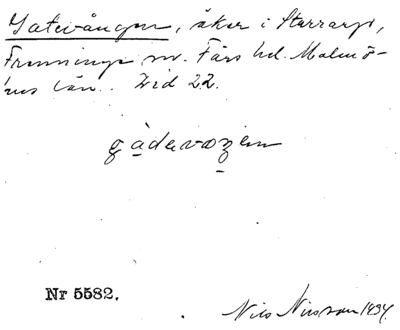 Gatevången, åker i Starrarp,
Frenninge sn. Färs hd. Malmö-
hus län. Zid 22.
gàdavoŋen
Nr 5582.
Nils Nilsson 1934.